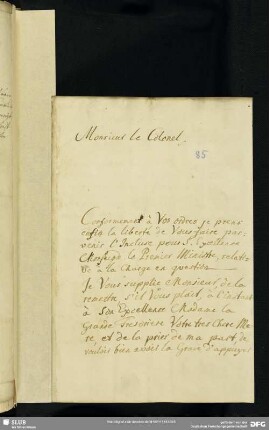 Monsieur le Colonel,
85
Conformement à Vos ordres je prens
la liberté de Vous faire par-
venir l'Incluse pour S. Excellence
le Premier Ministre, relati-
ve à la Charge en question
Je Vous supplie Monsieur, de la
remettre, s'il Vous plait, à l'instant
à Son Excellence Madame la
Grande Tresoriere Votre tres chere Me-
re, et de la prier de ma part de
vouloir bien aussi la Grace d'appuyer
SLUB
DFG